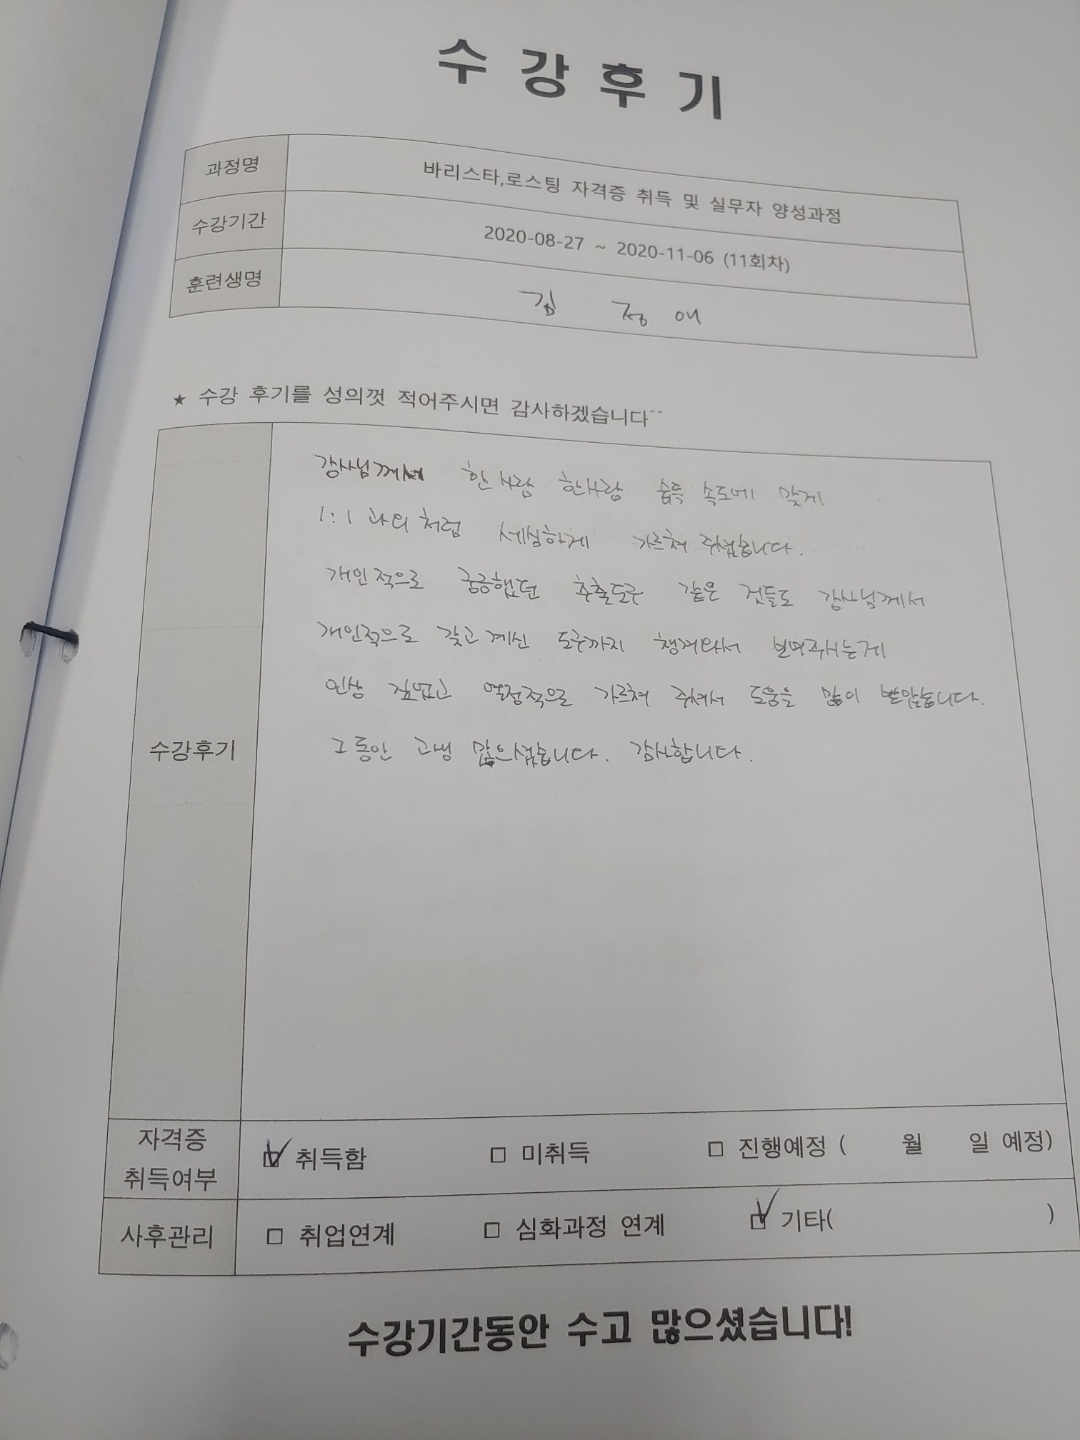 수강후기
과정명 바리스타,로스팅 자격증 취득 및 실무자 양성과정
수강기간 2020-08-27 ~ 2020-11-06 (11회차)
훈련생명 김 정 애
★ 수강 후기를 성의껏 적어주시면 감사하겠습니다^^
강사님께서 한사람 한사람 습득 속도에 맞게
1:1 과외처럼 세심하게 가르쳐 주셨습니다.
개인적으로 궁금했던 추출도구 같은 것들도 강사님께서
개인적으로 갖고 계신 도구까지 챙겨와서 보여주시는게
인상 깊었고 열정적으로 가르쳐 주셔서 도움을 많이 받았습니다.
그동안 고생 많으셨습니다. 감사합니다.
수강후기
자격증
취득여부
☑ 취득함 □ 미취득 □ 진행예정 ( 월 일 예정)
사후관리 □ 취업연계 □ 심화과정 연계 ☑ 기타( )
수강기간동안 수고 많으셨습니다!